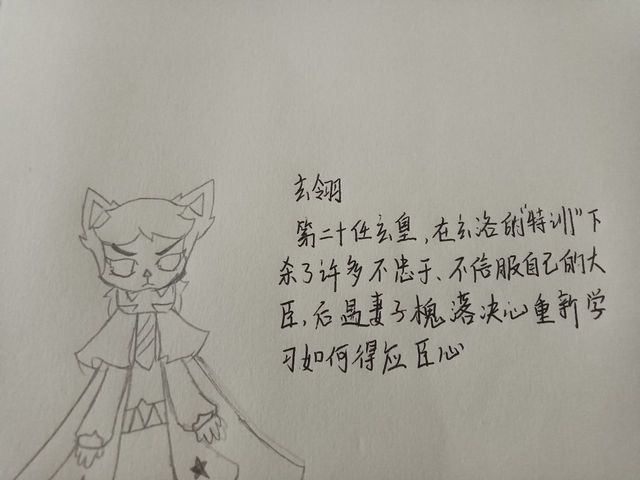 玄翎
第二十任玄皇，在玄洛的"特训"下
杀了许多不忠于、不信服自己的大
臣，后遇妻子槐落决心重新学
习如何得应臣心